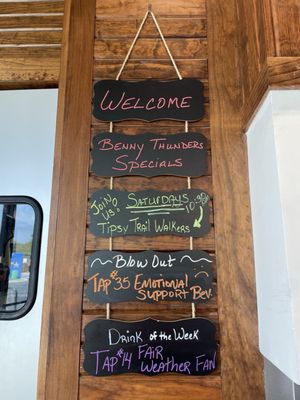 Welcome
Benny Thunders
Specials
Join Saturdays
us! 10:30
Tipsy Trail Walkers
Blow Out
Tap #35 Emotional
Support Bev.
Drink of the Week
Tap #14 Fair
Weather Fan